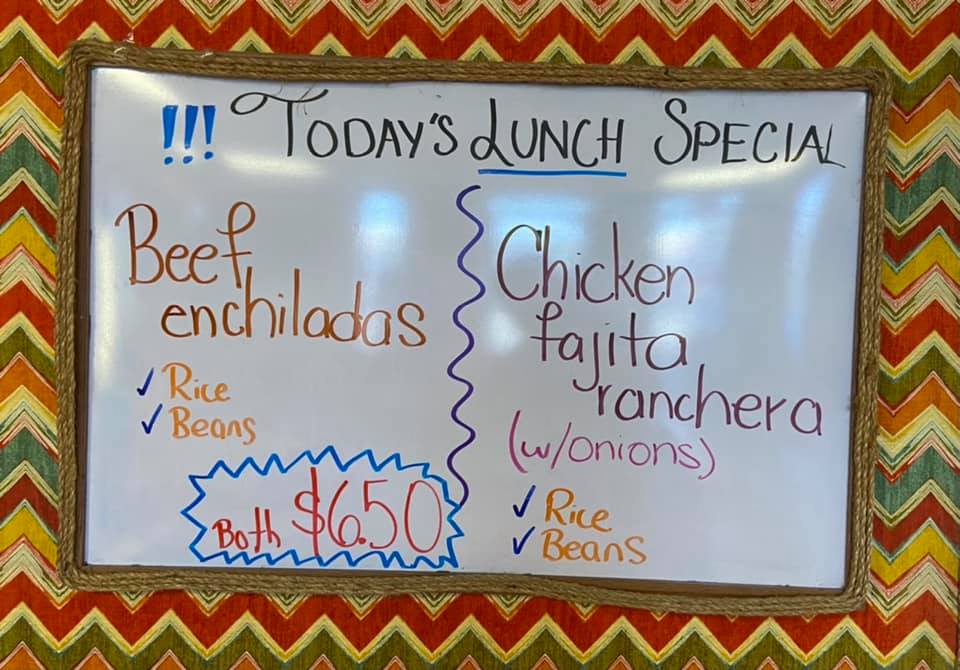 !!! TODAY'S LUNCH SPECIAL
Beef
enchiladas
✓ Rice
✓ Beans
Both $6.50
Chicken
fajita
ranchera
(w/onions)
✓ Rice
✓ Beans